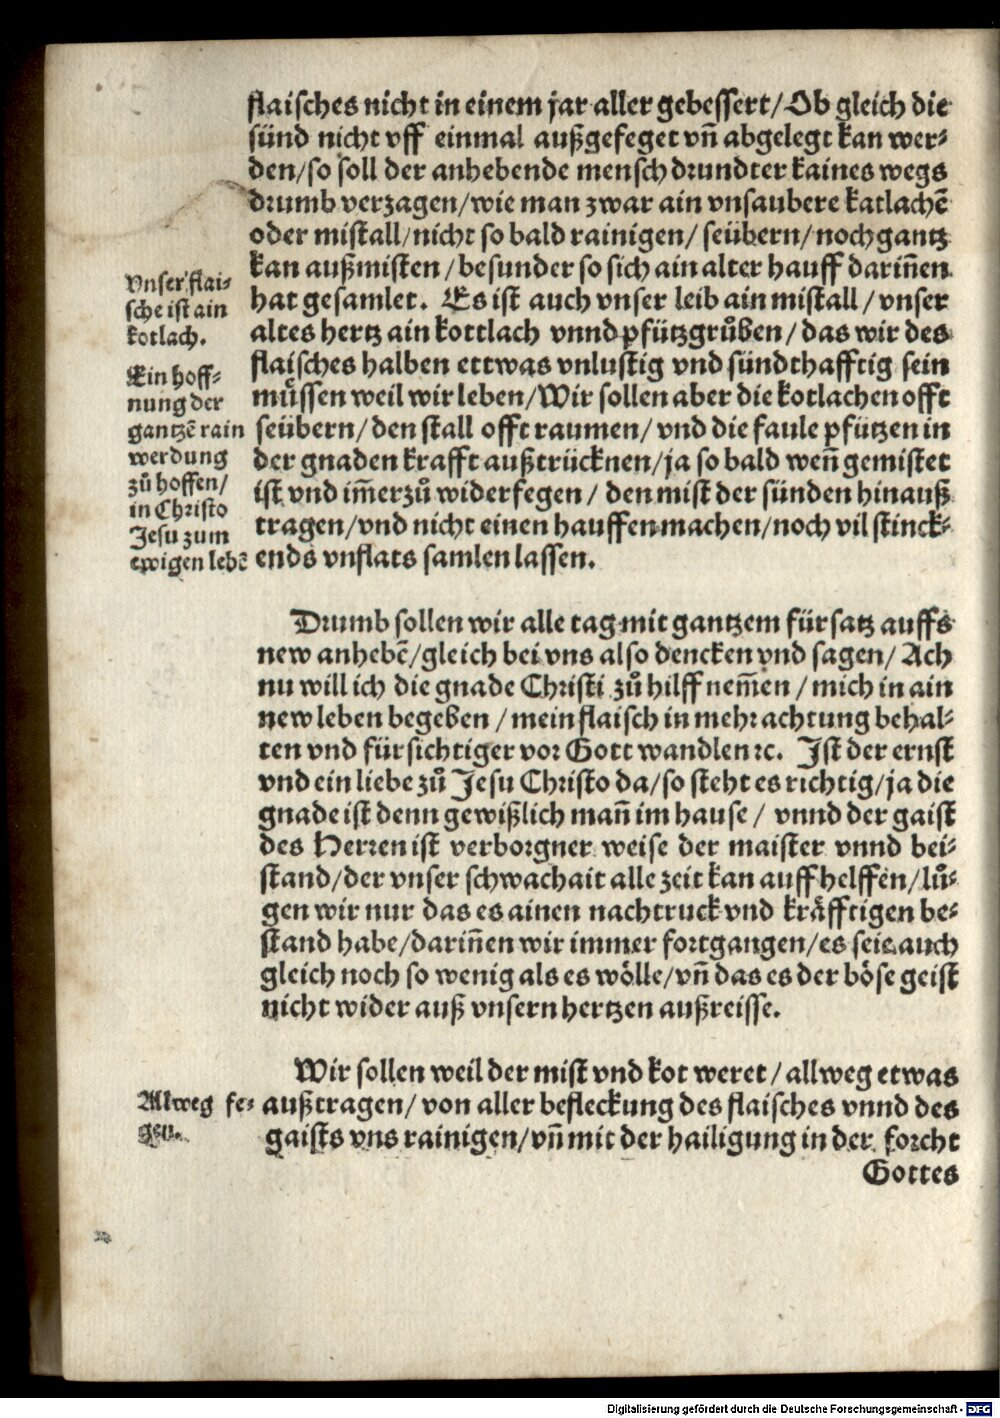 flaisches nicht in einem jar aller gebessert/Ob gleich die
sünd nicht vff einmal außgefeget vñ abgelegt kan wer⸗
den/so soll der anhebende mensch drundter kaines wegs
drumb verzagen/wie man zwar ain vnsaubere katlachẽ
oder mistall/nicht so bald rainigen/ seübern/noch gantz
kan außmisten/besunder so sich ain alter hauff dariñen
hat gesamlet. Es ist auch vnser leib ain mistall/vnser
altes hertz ain kottlach vnnd pfützgrůben/das wir des
flaisches halben ettwas vnlustig vnd sündthafftig sein
müssen weil wir leben/Wir sollen aber die kotlachen offt
seübern/den stall offt raumen/vnd die faule pfützen in
der gnaden krafft außtrücknen/ja so bald weñ gemistet
ist vnd im̃erzů widerfegen/ den mist der sünden hinauß
tragen/vnd nicht einen hauffen machen/noch vil stinck⸗
ends vnflats samlen lassen.
Vnser flai⸗
sche ist ain
kotlach.
Ein hoff⸗
nung der
gantzẽ rain
werdung
zů hoffen/
in Christo
Jesu zum
ewigen lebẽ
Drumb sollen wir alle tag mit gantzem fürsatz auffs
new anhebẽ/gleich bei vns also dencken vnd sagen/ Ach
nu will ich die gnade Christi zů hilff nem̃en/mich in ain
new leben begeben/mein flaisch in mehr achtung behal⸗
ten vnd fürsichtiger vor Gott wandlen ꝛc. Ist der ernst
vnd ein liebe zů Jesu Christo da/so steht es richtig/ja die
gnade ist denn gewißlich mañ im hause/ vnnd der gaist
des Herren ist verborgner weise der maister vnnd bei⸗
stand/der vnser schwachait alle zeit kan auffhelffen/lů⸗
gen wir nur das es ainen nachtruck vnd kräfftigen be⸗
stand habe/dariñen wir immer fortgangen/es seie auch
gleich noch so wenig als es wölle/vñ das es der böse geist
nicht wider auß vnsern hertzen außreisse.
Wir sollen weil der mist vnd kot weret/allweg etwas
außtragen/ von aller befleckung des flaisches vnnd des
gaists vns rainigen/vñ mit der hailigung in der forcht
Alweg fe⸗
gen.
Gottes
Digitalisierung gefördert durch die Deutsche Forschungsgemeinschaft - DFG